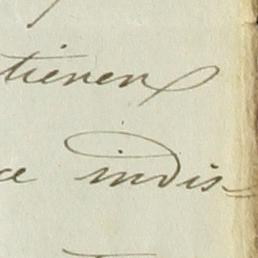 tienen
indis-